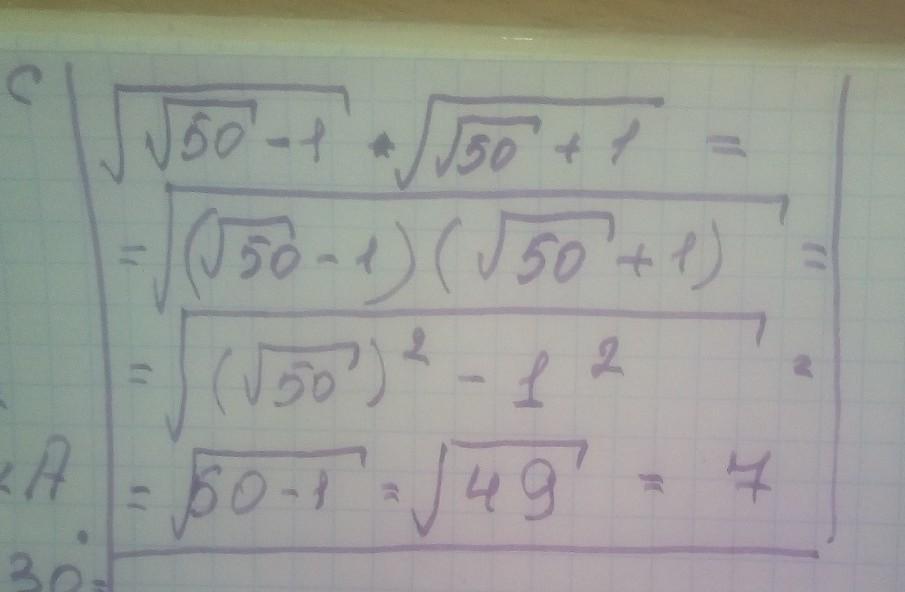 C
√(√50 - 1) • √(√50 + 1) =
= √((√50 - 1)(√50 + 1)) =
= √((√50)² - 1²) =
A = √(50 - 1) = √49 = 7
30° =